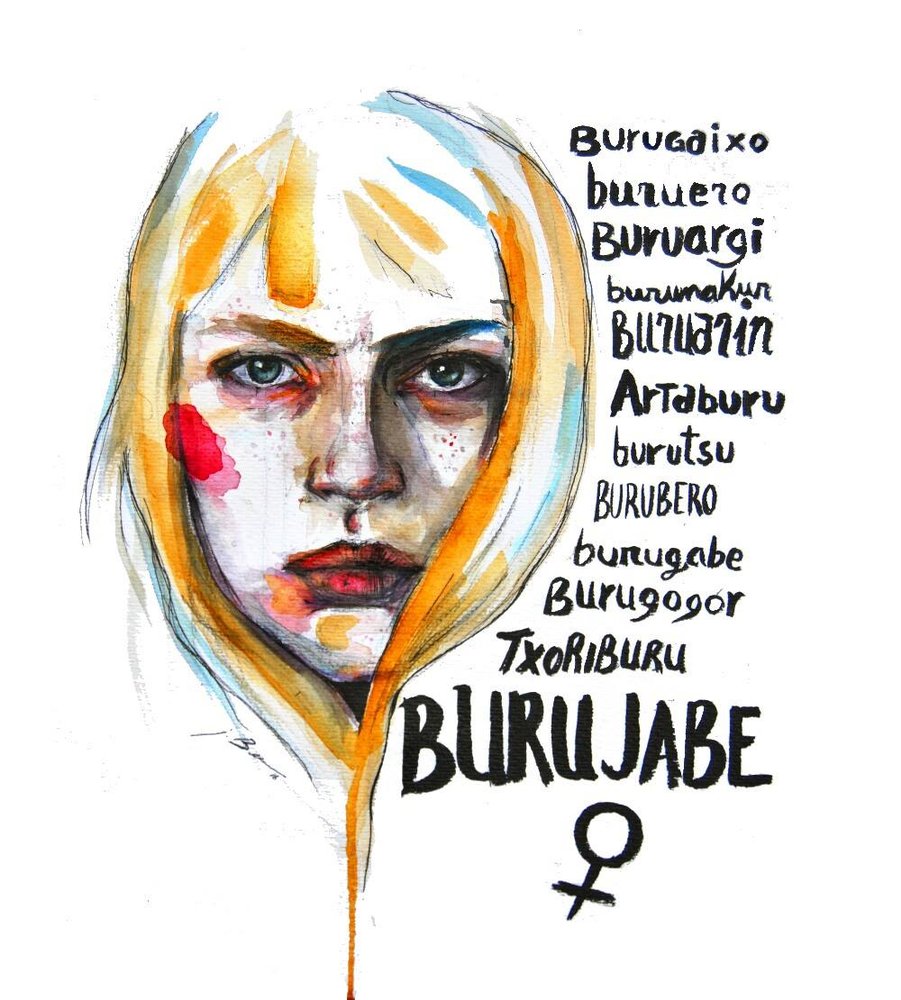 BuruGaixo
buruero
Buruargi
burumakur
Buruarin
Artaburu
burutsu
BURUBERO
burugabe
Burugogor
TXORIBURU
BURUJABE